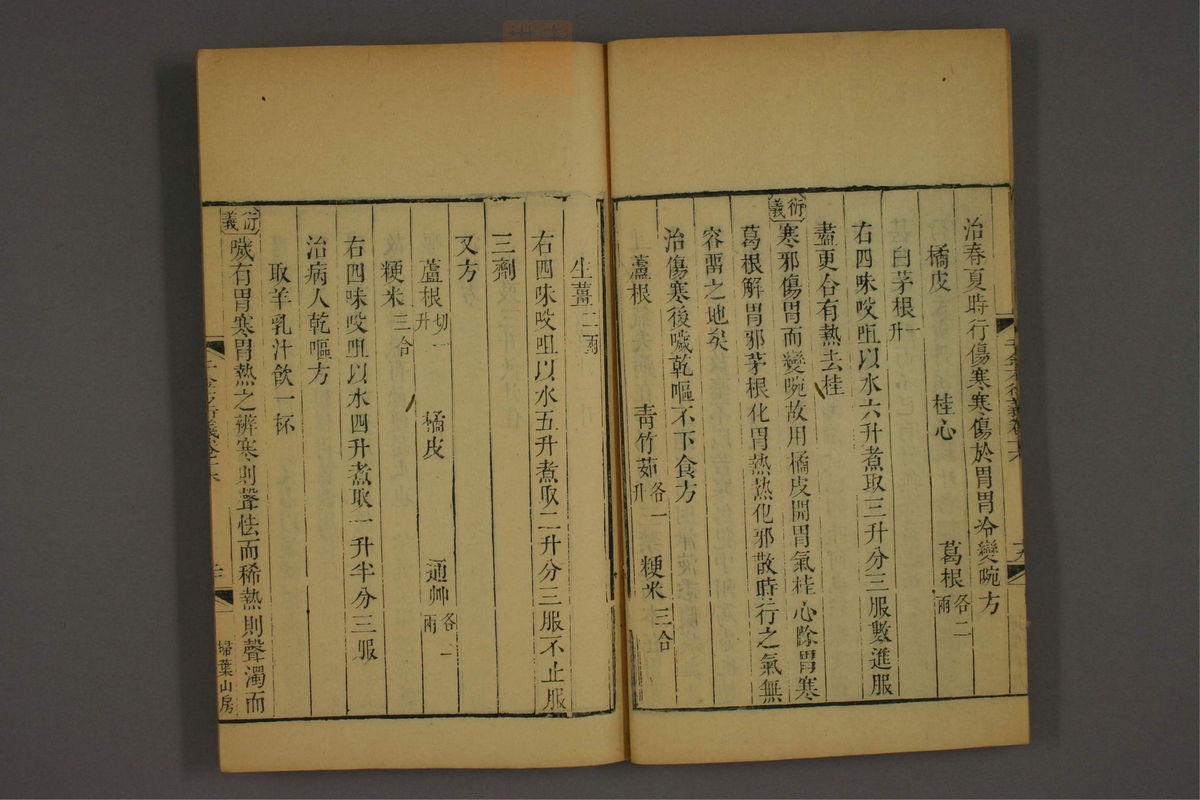 治春夏時行傷寒寒傷於胃胃冷變啘方
橘皮 桂心 葛根各二兩
白茅根一升
右四味㕮咀以水六升煮取三升分三服數進服
盡更合有熱去桂
衍義 寒邪傷胃而變啘故用橘皮開胃氣桂心除胃寒
葛根解胃邪茅根化胃熱熱化邪散時行之氣無
容畱之地矣
治傷寒後噦乾嘔不下食方
蘆根 靑竹茹各一升 粳米三合
生薑二兩
右四味㕮咀以水五升煮取二升分三服不止服
三劑
又方
蘆根切一升 橘皮 通艸各一兩
粳米三合
右四味㕮咀以水四升煮取一升半分三服
治病人乾嘔方
取羊乳汁飮一杯
衍義 噦有胃寒胃熱之辨寒則聲怯而稀熱則聲濁而
掃葉山房